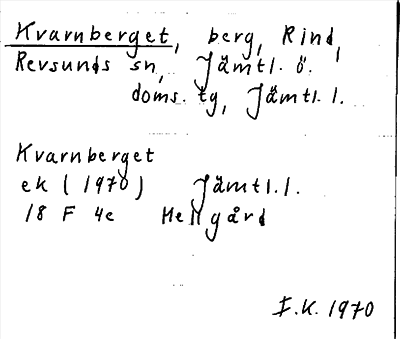 Kvarnberget, berg, Rind,
Revsunds sn, Jämtl. ö.
doms. tg, Jämtl. l.
Kvarnberget
ek (1970) Jämtl. l.
18 F 4e Hellgård
I.K. 1970